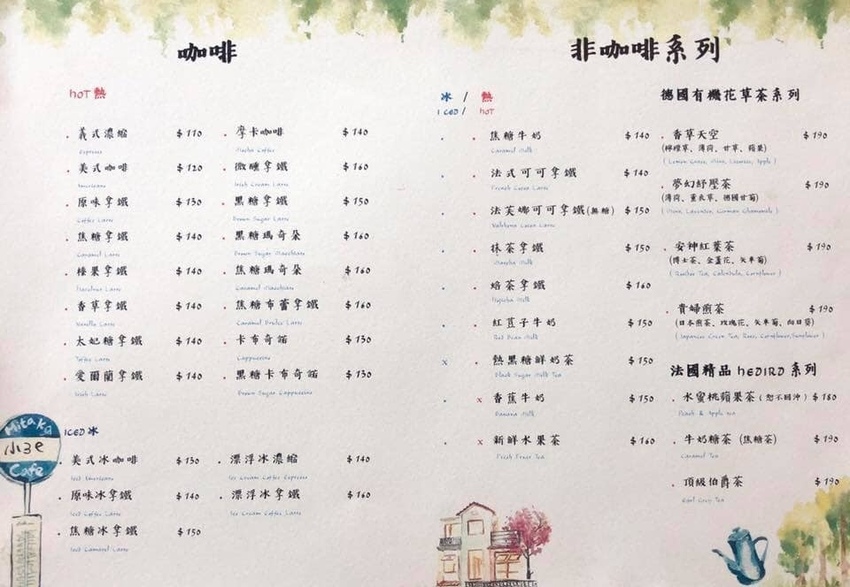 咖啡
hOT 熱
義式濃縮 $110
Espresso
美式咖啡 $120
Americano
原味拿鐵 $130
Coffee Latte
焦糖拿鐵 $140
Caramel Latte
榛果拿鐵 $140
Hazelnut Latte
香草拿鐵 $140
Vanilla Latte
太妃糖拿鐵 $140
Toffee Latte
愛爾蘭拿鐵 $140
Irish Latte
摩卡咖啡 $140
Mocha Coffee
微醺拿鐵 $160
Irish Cream Latte
黑糖拿鐵 $150
Brown Sugar Latte
黑糖瑪奇朵 $160
Brown Sugar Macchiato
焦糖瑪奇朵 $160
Caramel Macchiato
焦糖布蕾拿鐵 $160
Caramel Brulee Latte
卡布奇諾 $130
Cappuccino
黑糖卡布奇諾 $150
Brown Sugar Cappuccino
ICED 冰
美式冰咖啡 $130
Iced Americano
原味冰拿鐵 $140
Iced Coffee Latte
焦糖冰拿鐵 $150
Iced Caramel Latte
漂浮冰濃縮 $140
Ice Cream Coffee Espresso
漂浮冰拿鐵 $160
Ice Cream Coffee Latte
Mitaka
小3e
Cafe
非咖啡系列
冰 / 熱
ICED / hOT
焦糖牛奶 $140
Caramel Milk
法式可可拿鐵 $140
French Cocoa Latte
法芙娜可可拿鐵(無糖) $150
Valrhona Cocoa Latte
抹茶拿鐵 $150
Matcha Milk
焙茶拿鐵 $160
Hojicha Milk
紅荳子牛奶 $150
Red Bean Milk
x 熱黑糖鮮奶茶 $150
Black Sugar Milk Tea
x 香蕉牛奶 $150
Banana Milk
x 新鮮水果茶 $160
Fresh Fruit Tea
德國有機花草茶系列
香草天空 $190
(檸檬草、薄荷、甘草、蘋果)
( Lemon Grass, Mint, Licorice, Apple )
夢幻紓壓茶 $190
(薄荷、薰衣草、德國甘菊)
( Mint, Lavender, German Chamomile )
安神紅葉茶 $190
(博士茶、金盞花、矢車菊)
( Rooibos Tea, Calendula, Cornflower )
貴婦煎茶 $190
(日本煎茶、玫瑰花、矢車菊、向日葵)
( Japanese Green Tea, Rose, Cornflower, Sunflower )
法國精品 hEDIRD 系列
水蜜桃蘋果茶 (恕不回沖) $180
Peach & Apple tea
牛奶糖茶 (焦糖茶) $190
Caramel Tea
頂級伯爵茶 $190
Earl Grey Tea